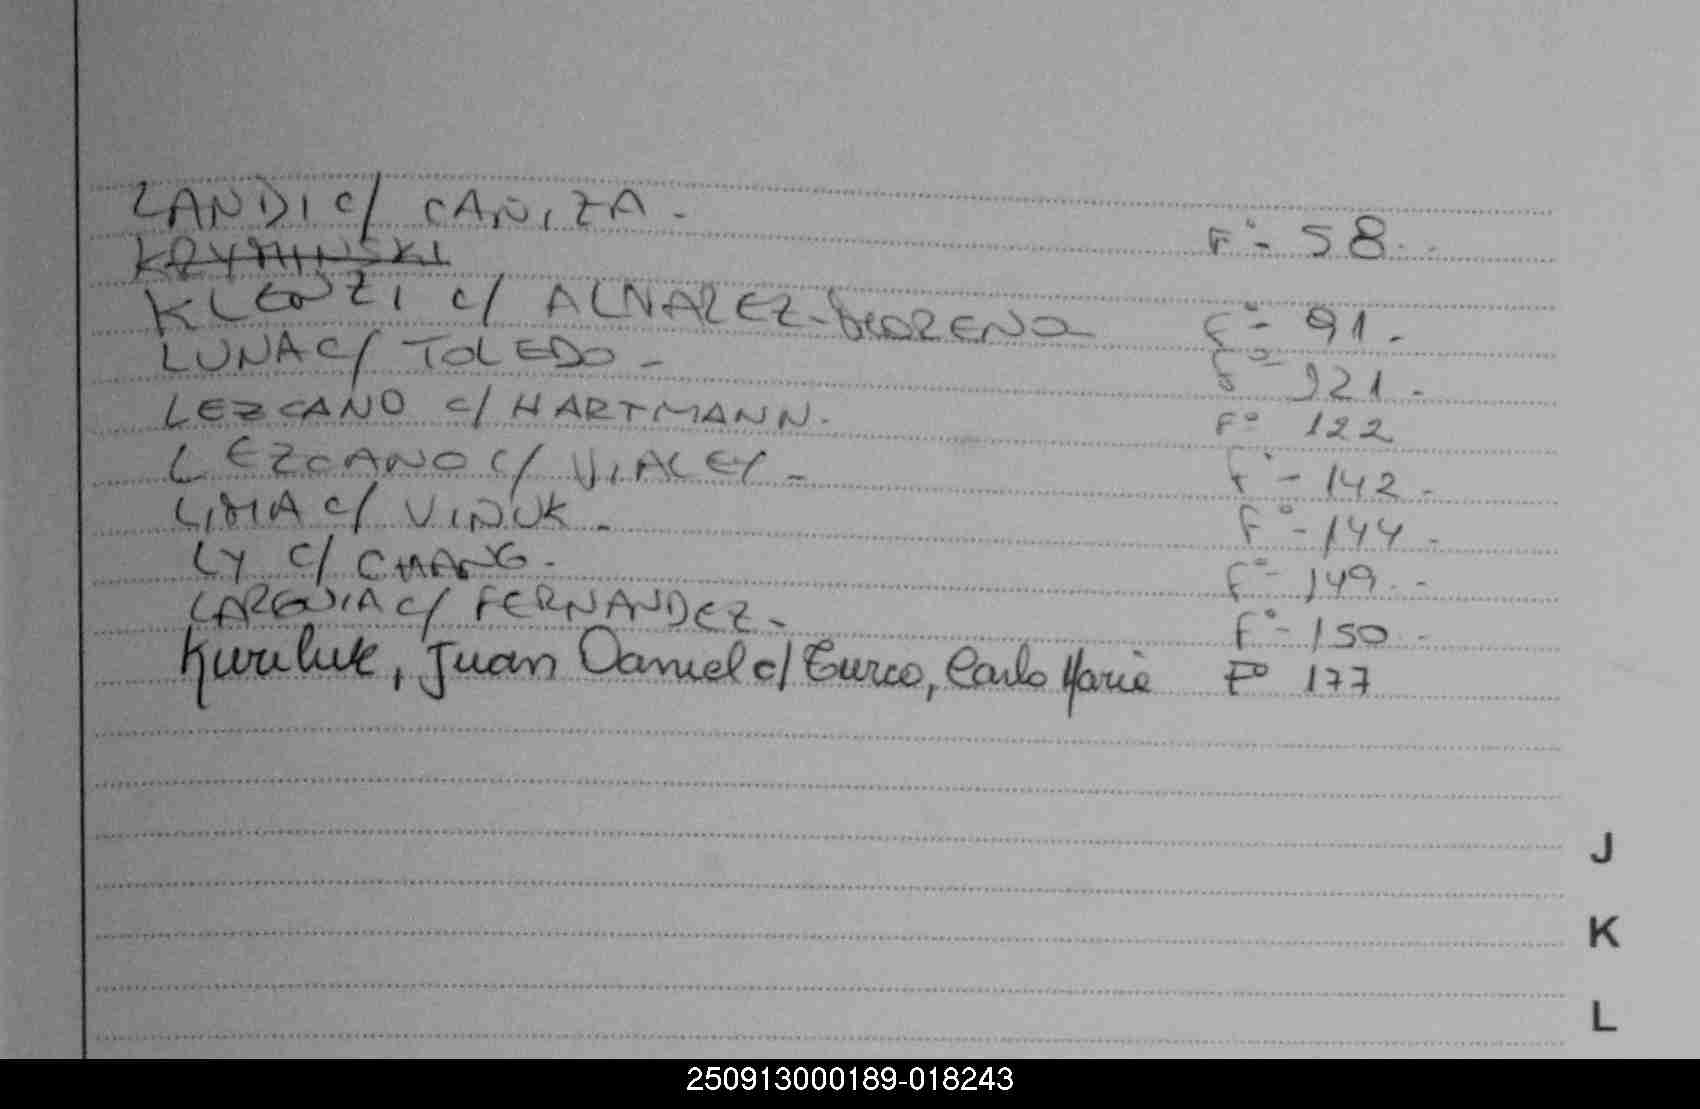 LANDI c/ CANIZA. F° - 58
KRYMINSKI
KLENZI c/ ALVAREZ - MORENO F° - 91.
LUNA c/ TOLEDO - F° - 121.
LEZCANO c/ HARTMANN. F° 122
LEZCANO c/ VIALEY - F° - 142 -
LIMA c/ VINUK. F° - 144 -
LY c/ CHANG. F° - 149 -
c/ FERNANDEZ - F° - 150 -
Kuruluk, Juan Daniel c/ Turco, Carlo Maria F° 177
J
K
L
250913000189-018243